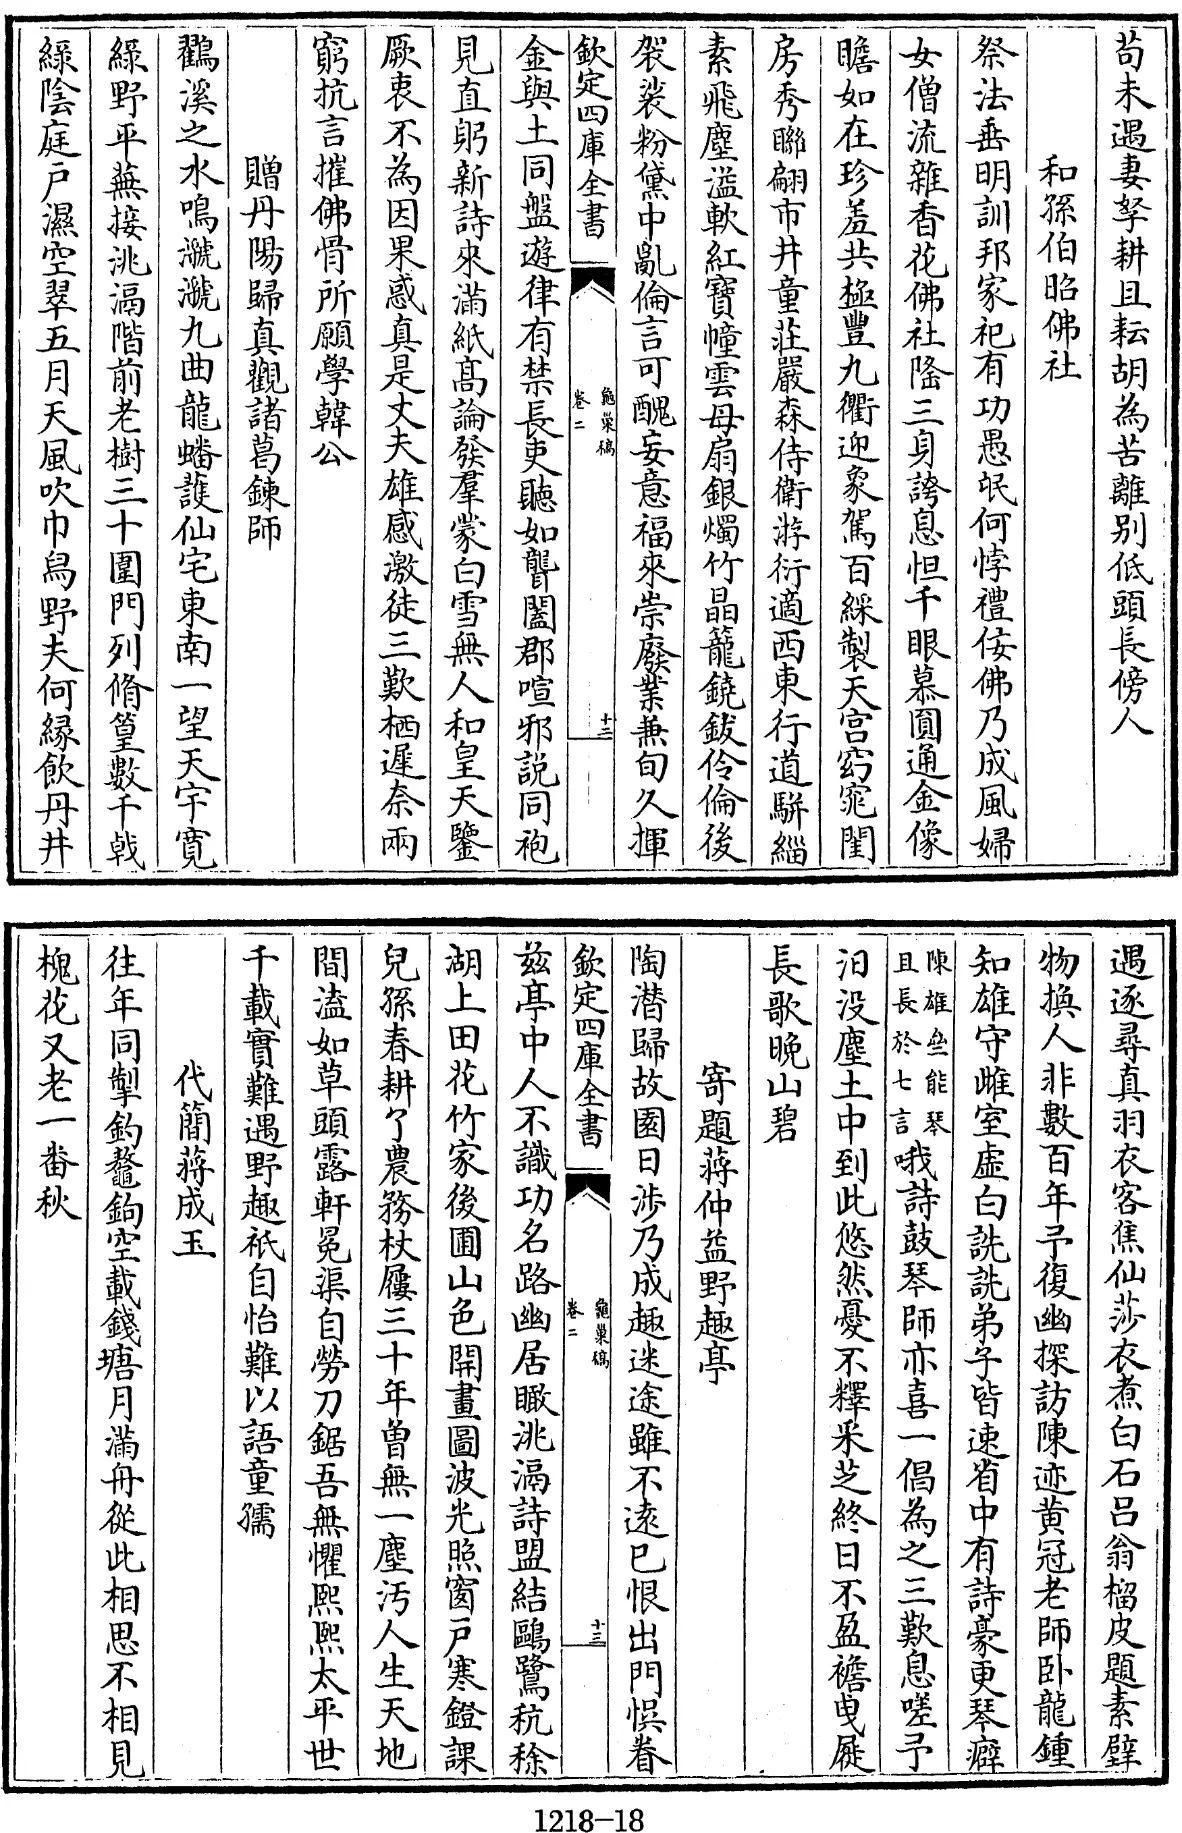 苟未遇妻孥耕且耘胡為苦離别低頭長傍人
和孫伯昭佛社
祭法垂明訓邦家祀有功愚氓何悖禮佞佛乃成風婦
女僧流雜香花佛社隆三身誇息怛千眼慕圓通金像
瞻如在珍羞共極豐九衢迎象駕百綵製天宫窈窕閨
房秀聯翩市井童莊嚴森侍衛游衍適西東行道駢緇
素飛塵溢軟紅寶幢雲母扇銀燭竹晶籠鐃鈸伶倫後
袈裟粉黛中亂倫言可醜妄意福來崇廢業兼旬久揮
欽定四庫全書
龜巢稿
卷二
十二
金與土同盤遊律有禁長吏聽如聾闔郡喧邪説同袍
見直躬新詩來滿紙髙論發羣蒙白雪無人和皇天鑒
厥衷不為因果惑真是丈夫雄感激徒三歎栖遲奈兩
窮抗言摧佛骨所願學韓公
贈丹陽歸真觀諸葛鍊師
鸛溪之水鳴瀧瀧九曲龍蟠護仙宅東南一望天宇寛
緑野平蕪接洮滆階前老樹三十圍門列脩篁數千㦸
緑陰庭户濕空翠五月天風吹巾舄野夫何緣飲丹井
遇逐尋真羽衣客焦仙莎衣煮白石吕翁榴皮題素壁
物換人非數百年予復幽探訪陳迹黄冠老師卧龍鍾
知雄守雌室虚白詵詵弟子皆速省中有詩豪更琴癖
陳雄壘能琴
且長於七言
哦詩鼓琴師亦喜一倡為之三歎息嗟予
汨没塵土中到此悠然憂不釋采芝終日不盈襜曳屣
長歌晚山碧
寄題蔣仲益野趣亭
陶潜歸故園日渉乃成趣迷途雖不逺已恨出門悞眷
欽定四庫全書
龜巢稿
卷二
十三
兹亭中人不識功名路幽居瞰洮滆詩盟結鷗鷺秔稌
湖上田花竹家後圃山色開畫圖波光照窗户寒鐙課
兒孫春耕了農務杖屨三十年曽無一塵汚人生天地
間溘如草頭露軒冕渠自勞刀鋸吾無懼熙熙太平世
千載實難遇野趣祇自怡難以語童孺
代簡蔣成玉
往年同掣釣鼇鉤空載錢塘月滿舟從此相思不相見
槐花又老一畨秋
1218-18